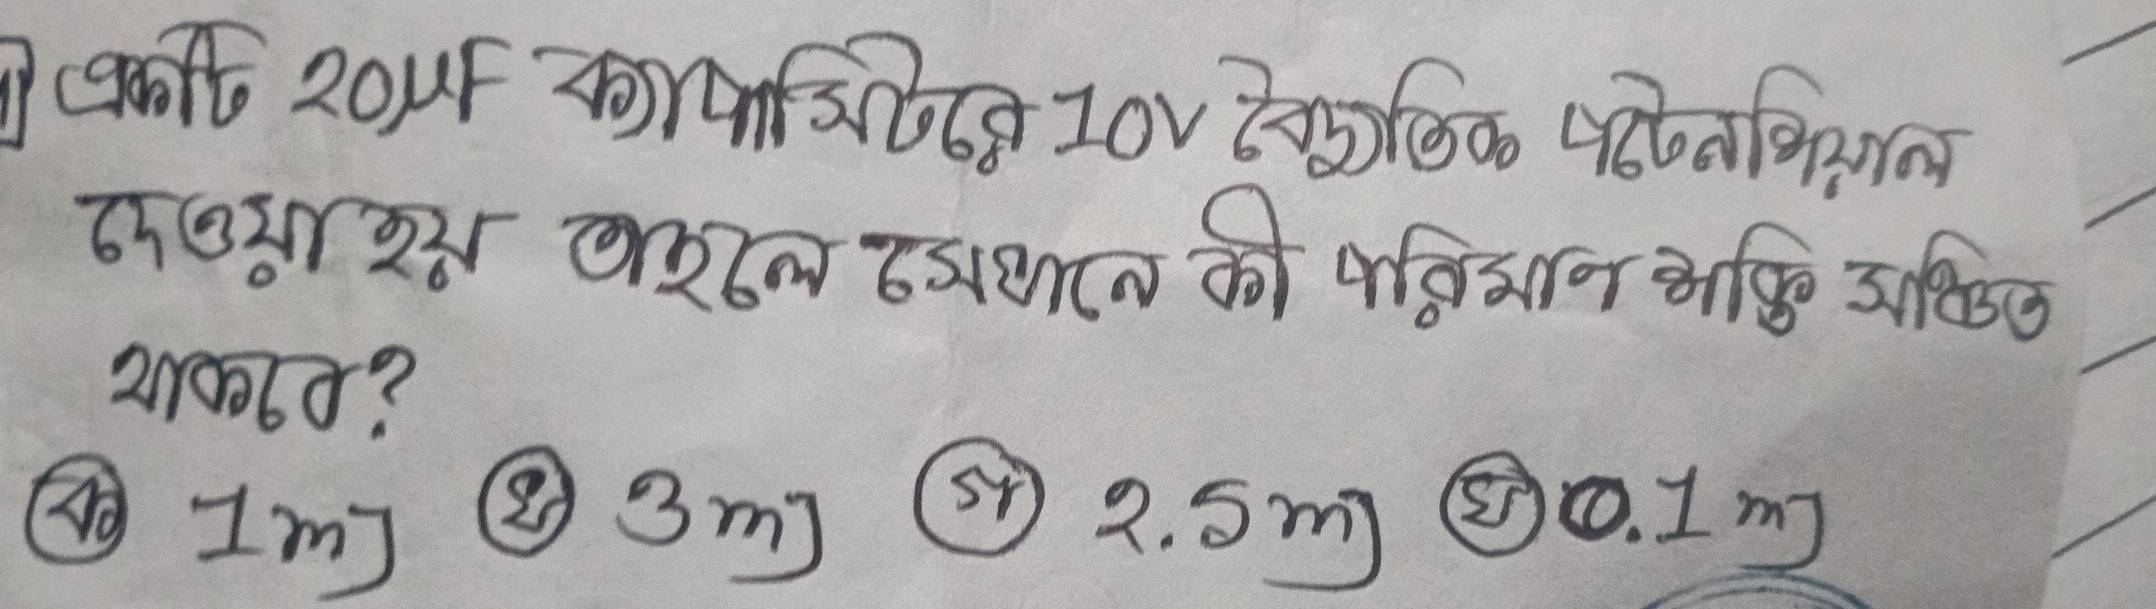 একটি 20μF ক্যাপাসিটরে 10V বৈদ্যুতিক পটেনশিয়াল
দেওয়া হয় তাহলে সেখানে কী পরিমান শক্তি সঞ্চিত
থাকবে?
ক 1mJ খ 3mJ গ 2.5mJ ঘ 0.1mJ